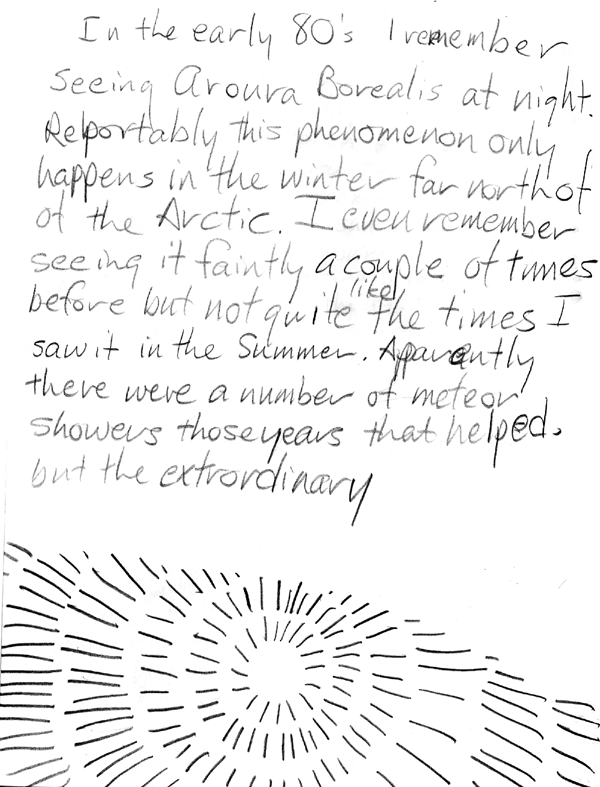 In the early 80's I remember
seeing Aroura Borealis at night.
Reportably this phenomenon only
happens in the winter far north of
of the Arctic. I even remember
seeing it faintly a couple of times
before but not quite like the times I
saw it in the Summer. Apparently
there were a number of meteor
showers those years that helped.
but the extrordinary